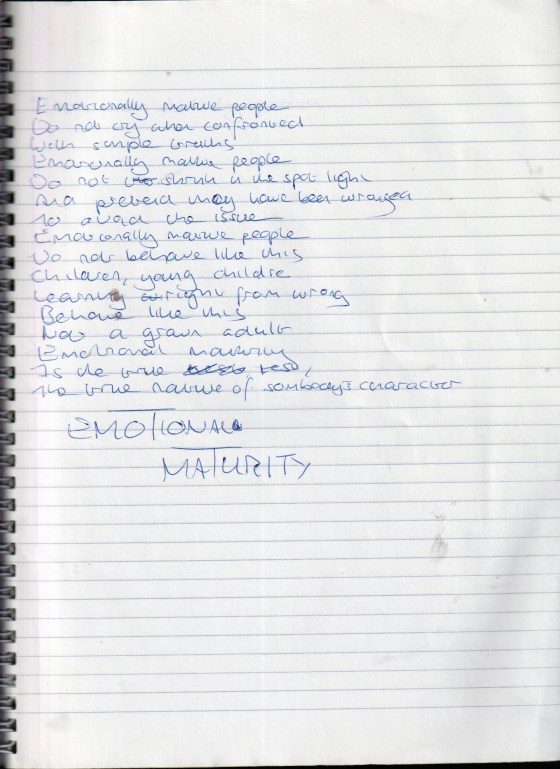 Emotionally mature people
Do not cry when confronted
With simple truths
Emotionally mature people
Do not shrink in the spot light
And pretend they have been wronged
To avoid the issue
Emotionally mature people
Do not behave like this
Children, young childre
Learning right from wrong
Behave like this
Not a grown adult
Emotional maturity
Is the true test,
The true nature of sombody's character
EMOTIONAL
MATURITY